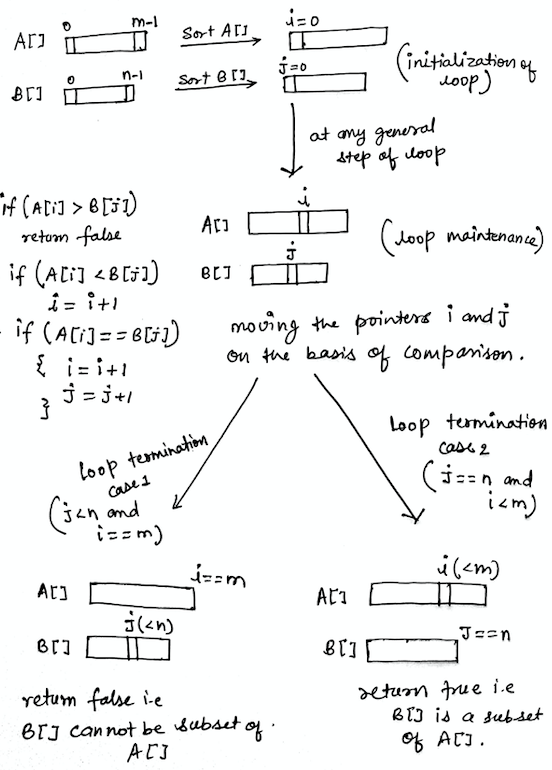 0 m-1
A[] Sort A[] i=0
(initialization of
loop)
0 n-1
B[] Sort B[] j=0
at any general
step of loop
if (A[i] > B[j])
return false
if (A[i] < B[j])
i = i+1
if (A[i] == B[j])
{ i = i+1
j = j+1
}
i
A[]
(loop maintenance)
j
B[]
moving the pointers i and j
on the basis of comparison.
loop termination
case 1
(j<n and
i==m)
Loop termination
case 2
(j==n and
i<m)
i==m
A[]
j(<n)
B[]
return false i.e
B[] cannot be subset of.
A[]
i(<m)
A[]
J==n
B[]
return true i.e
B[] is a subset
of A[].